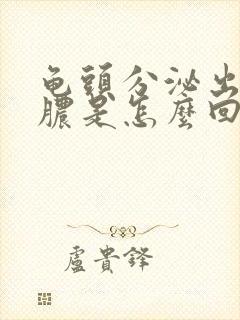 龟頭分泌出
膿是怎麼回
盧貴鋒